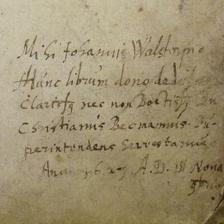 Mihi Johannis Walstorpio
Hunc librum dono ded
Clariss nec non Doctiss Dn
Christianus Becmannus Su-
perintendens Servestanus
Anno A. D. III Nona